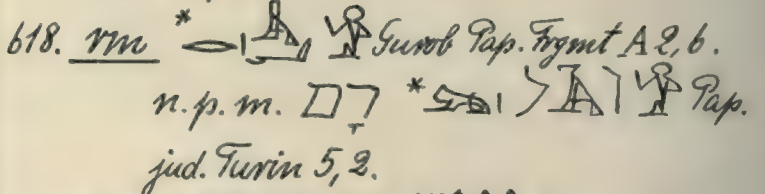 618. rm * Gurob Pap. Frgmt A 2, 6.
n.p.m. רָם * Pap.
jud. Turin 5, 2.